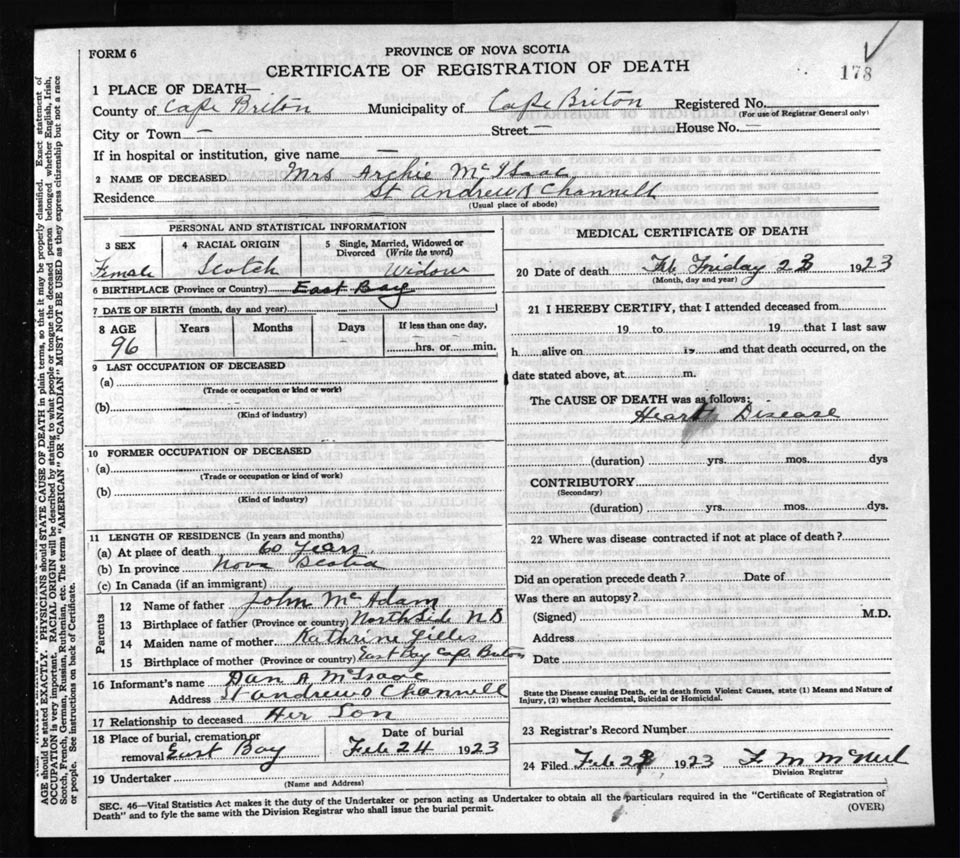 FORM 6
PROVINCE OF NOVA SCOTIA
CERTIFICATE OF REGISTRATION OF DEATH
178
1 PLACE OF DEATH—
County of Cape Briton Municipality of Cape Briton Registered No.
(For use of Registrar General only)
City or Town — Street — House No. —
If in hospital or institution, give name —
2 NAME OF DECEASED Mrs Archie McIsaac
Residence St Andrews Channell
(Usual place of abode)
PERSONAL AND STATISTICAL INFORMATION
3 SEX 4 RACIAL ORIGIN 5 Single, Married, Widowed or Divorced (Write the word)
Female Scotch Widow
6 BIRTHPLACE (Province or Country) East Bay
7 DATE OF BIRTH (month, day and year)
8 AGE Years Months Days If less than one day,
96 hrs. or min.
9 LAST OCCUPATION OF DECEASED
(a)
(Trade or occupation or kind or work)
(b)
(Kind of industry)
10 FORMER OCCUPATION OF DECEASED
(a)
(Trade or occupation or kind of work)
(b)
(Kind of industry)
11 LENGTH OF RESIDENCE (In years and months)
(a) At place of death 60 Years
(b) In province Nova Scotia
(c) In Canada (if an immigrant)
Parents
12 Name of father John McAdam
13 Birthplace of father (Province or country) Northside
14 Maiden name of mother Kathrine Gillis
15 Birthplace of mother (Province or country) East Bay Cape Briton
16 Informant's name Dan A McIsaac
Address St andrews Channell
17 Relationship to deceased Her Son
18 Place of burial, cremation or removal East Bay
Date of burial
Feb 24 1923
19 Undertaker
(Name and Address)
MEDICAL CERTIFICATE OF DEATH
20 Date of death Feb Friday 23 1923
(Month, day and year)
21 I HEREBY CERTIFY, that I attended deceased from
19 to 19 that I last saw
h alive on 19 and that death occurred, on the
date stated above, at m.
The CAUSE OF DEATH was as follows:
Heart Disease
(duration) yrs. mos. dys
CONTRIBUTORY
(Secondary)
(duration) yrs. mos. dys.
22 Where was disease contracted if not at place of death?
Did an operation precede death? Date of
Was there an autopsy?
(Signed) M.D.
Address
Date
State the Disease causing Death, or in death from Violent Causes, state (1) Means and Nature of
Injury, (2) whether Accidental, Suicidal or Homicidal.
23 Registrar's Record Number
24 Filed Feb 1923 F M McNeil
Division Registrar
SEC. 46—Vital Statistics Act makes it the duty of the Undertaker or person acting as Undertaker to obtain all the particulars required in the "Certificate of Registration of
Death" and to fyle the same with the Division Registrar who shall issue the burial permit.
(OVER)
AGE should be stated EXACTLY. PHYSICIANS should STATE CAUSE OF DEATH in plain terms, so that it may be properly classified. Exact statement of
OCCUPATION is very important. RACIAL ORIGIN will be described by stating to what people or tongue the deceased person belonged, whether English, Irish,
Scotch, French, German, Russian, Ruthenian, etc. The terms "AMERICAN" OR "CANADIAN" MUST NOT BE USED as they express citizenship but not a race
or people. See instructions on back of Certificate.